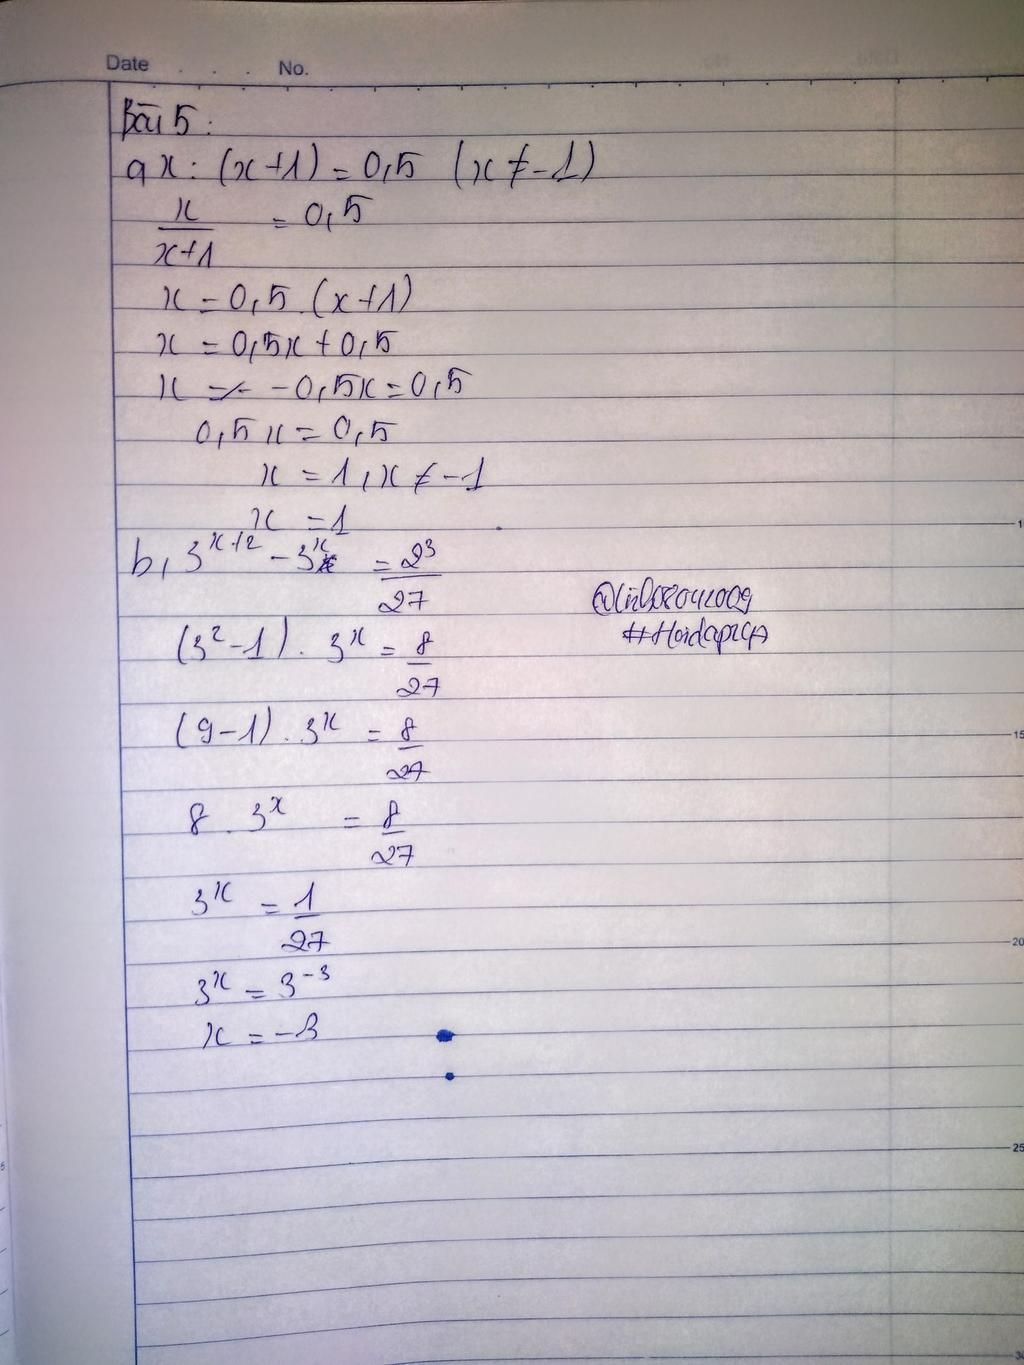 Date . . . No.
Bài 5:
a, x : (x+1) = 0,5 (x ≠ -1)
x/x+1 = 0,5
x = 0,5 . (x+1)
x = 0,5x + 0,5
x - 0,5x = 0,5
0,5x = 0,5
x = 1, x ≠ -1
x = 1
b, 3^x+2 - 3^x = 2^3/27
(3^2 - 1) . 3^x = 8/27
#Hoidap247
(9-1) . 3^x = 8/27
15
8 . 3^x = 8/27
3^x = 1/27
20
3^x = 3^-3
x = -3
25